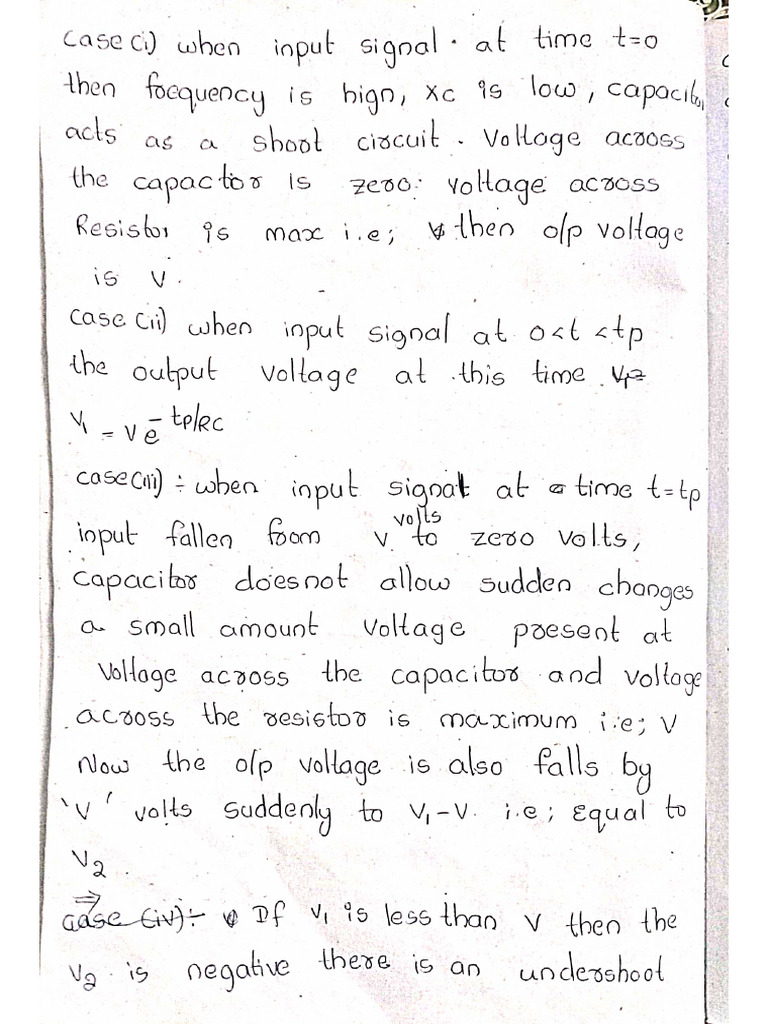 case(i) when input signal. at time t=0
then focquency is hign, xc is low, capacitor
acts as a short circuit. Voltage across
the capactor is zero. voltage across
Resistor is max i.e; then o/p voltage
is V.
case(ii) when input signal at 0<t<tp
the output voltage at this time
V1 = Ve^-tp/RC
case(iii) ÷ when input signal at time t=tp
input fallen from V volts to zero volts,
capacitor doesnot allow sudden changes
a small amount voltage present at
Voltage across the capacitor and voltage
across the resistor is maximum i.e; V
Now the o/p voltage is also falls by
'V' volts suddenly to V1-V. i.e; Equal to
V2.
⇒ case (iv):- If V1 is less than V then the
V2 is negative there is an undershoot